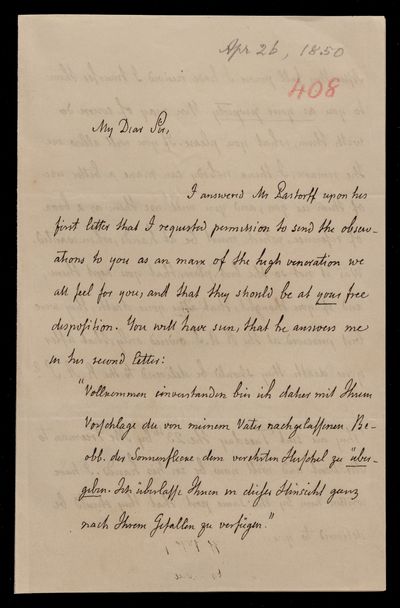 Apr 26, 1850
408
My Dear Sir,
I answered Mr Pastorff upon his
first letter that I requested permission to send the obser-
vations to you as an mark of the high veneration we
all feel for you, and that they should be at your free
disposition. You will have seen, that he answers me
in his second letter:
"Vollkommen einverstanden bin ich daher mit Ihrem
Vorschlage die von meinem Vater nachgelassenen Be-
obb. der Sonnenflecke dem verehrten Herschel zu über-
geben. Ich überlasse Ihnen in dieser Hinsicht ganz
nach Ihrem Gefallen zu verfügen."